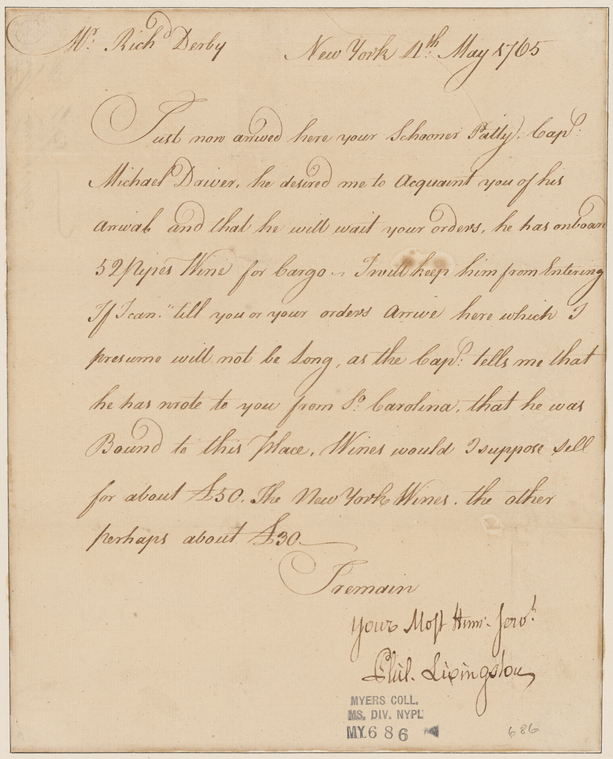 Mr. Richd Derby New York 4th May 1765
Just now arived here your Schooner Patty. Capt:
Michael Driver, he desired me to Acquaint you of his
arival and that he will wait your orders, he has onboard
52 Pipes Wine for Cargo I will keep him from Entering
If I can till you or your orders arrive here which I
presume will not be long, as the Capt: tells me that
he has wrote to you from So. Carolina, that he was
Bound to this Place, Wines would I suppose sell
for about £50. The New York Wines. the other
perhaps about £30
I remain
your Most Hum. Servt.
Phil. Livingston
MYERS COLL.
MS. DIV. NYPL
MY.686
686